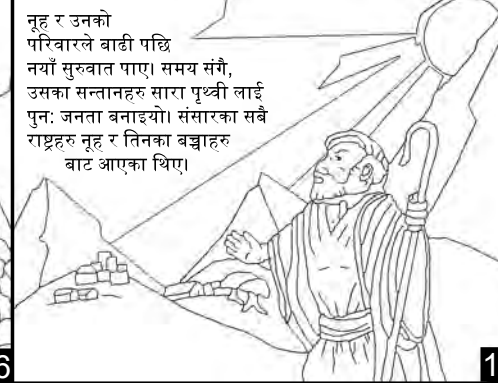 नूह र उनको
परिवारले बाढी पछि
नयाँ सुरुवात पाए। समय संगै,
उसका सन्तानहरु सारा पृथ्वी लाई
पुन: जनता बनाइयो। संसारका सबै
राष्ट्रहरु नूह र तिनका बच्चाहरु
बाट आएका थिए।
6
1